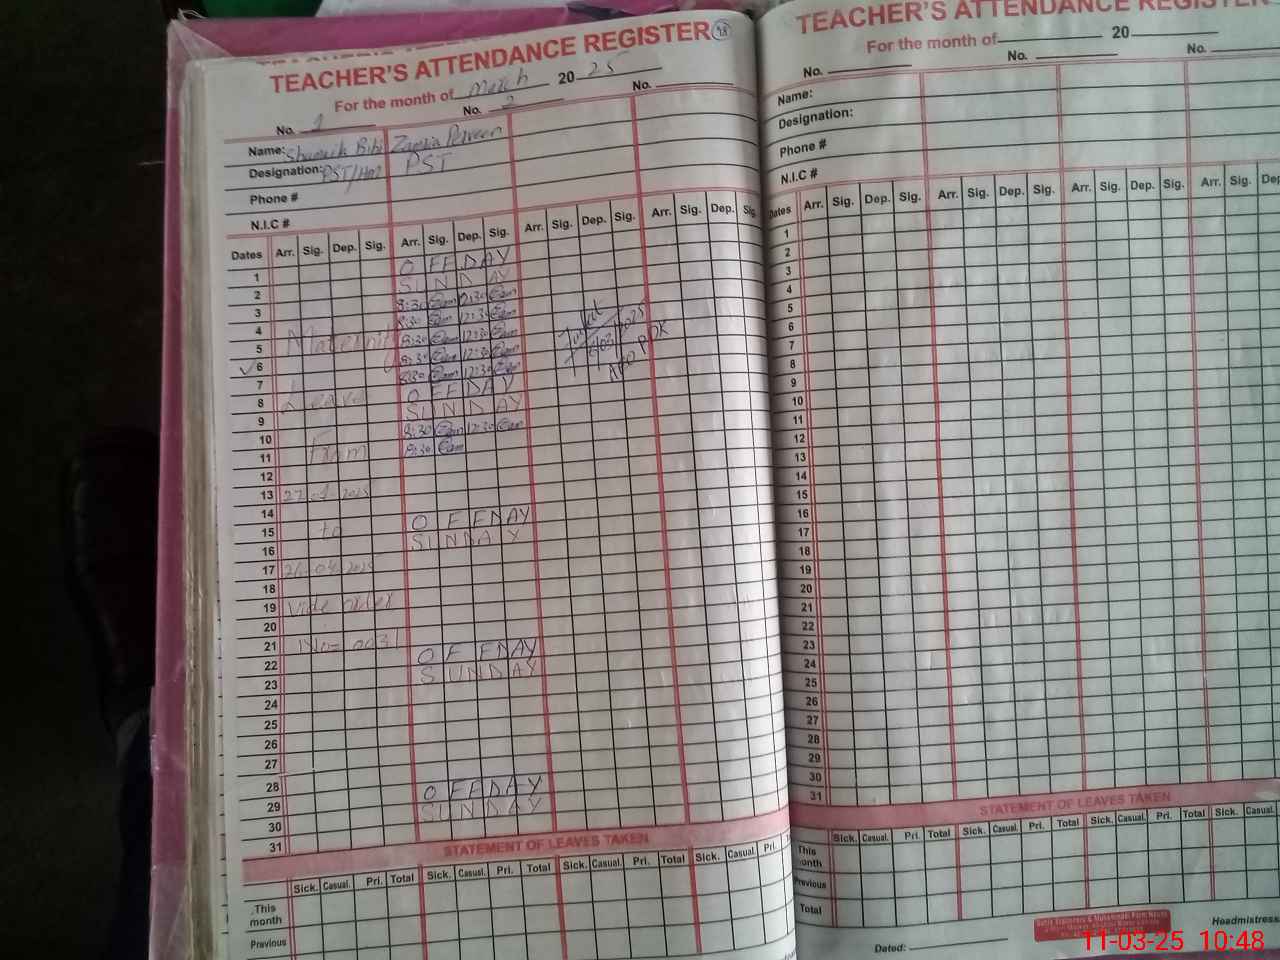 TEACHER'S ATTENDANCE REGISTER 98
For the month of March 20 25
No. 1 No. 2 No.
Name: Shameek Bibi Zamzia Perveen
Designation: PST/HM PST
Phone #
N.I.C #
Dates Arr. Sig. Dep. Sig. Arr. Sig. Dep. Sig. Arr. Sig. Dep. Sig. Arr. Sig. Dep. Sig.
1 OFF DAY
2 SUNDAY
3 8:30 12:30
4 8:30 12:30
5 Maternity 8:30 12:30
6 8:30 12:30
7 8:30 12:30
8 Leave OFF DAY
9 SUNDAY
10 8:30 12:30
11 From 8:30
12
13
14
15 to OFF DAY
16 SUNDAY
17
18
19 vide order
20
21 No= 0031
22 OFF DAY
23 SUNDAY
24
25
26
27
28
29 OFF DAY
30 SUNDAY
31
STATEMENT OF LEAVES TAKEN
Sick. Casual. Pri. Total Sick. Casual. Pri. Total Sick. Casual. Pri.
This month
Previous
TEACHER'S ATTENDANCE REGISTER
For the month of 20
No. No. No.
Name:
Designation:
Phone #
N.I.C #
Dates Arr. Sig. Dep. Sig. Arr. Sig. Dep. Sig. Arr. Sig. Dep. Sig. Arr. Sig. Dep
1
2
3
4
5
6
7
8
9
10
11
12
13
14
15
16
17
18
19
20
21
22
23
24
25
26
27
28
29
30
31
STATEMENT OF LEAVES TAKEN
Sick. Casual. Pri. Total Sick. Casual. Pri. Total Sick. Casual. Pri. Total Sick. Casual.
This month
Previous
Total
Dated:
Headmistress
11-03-25 10:48